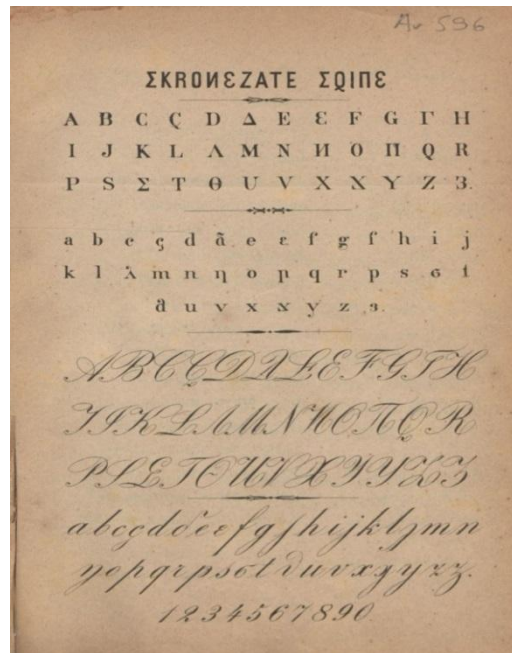 Av 596
ΣKRONИƐZATE ΣQIΠƐ
A B C Ç D Δ E Ɛ F G Γ H
I J K L Λ M N И O Π Q R
P S Σ T Θ U V X X Y Z З.
a b c ç d e ε f g f h i j
k l λ m n η o p q r p s σ t
u v x x y z з.
A B C Ç D E Ɛ F G Γ H
I J K L Λ M N И O Π Q R
P S Σ T Θ U V X Y Z З
a b c ç d e ε f g h i j k l m n
o p q r p s σ t u v x y z з.
1 2 3 4 5 6 7 8 9 0